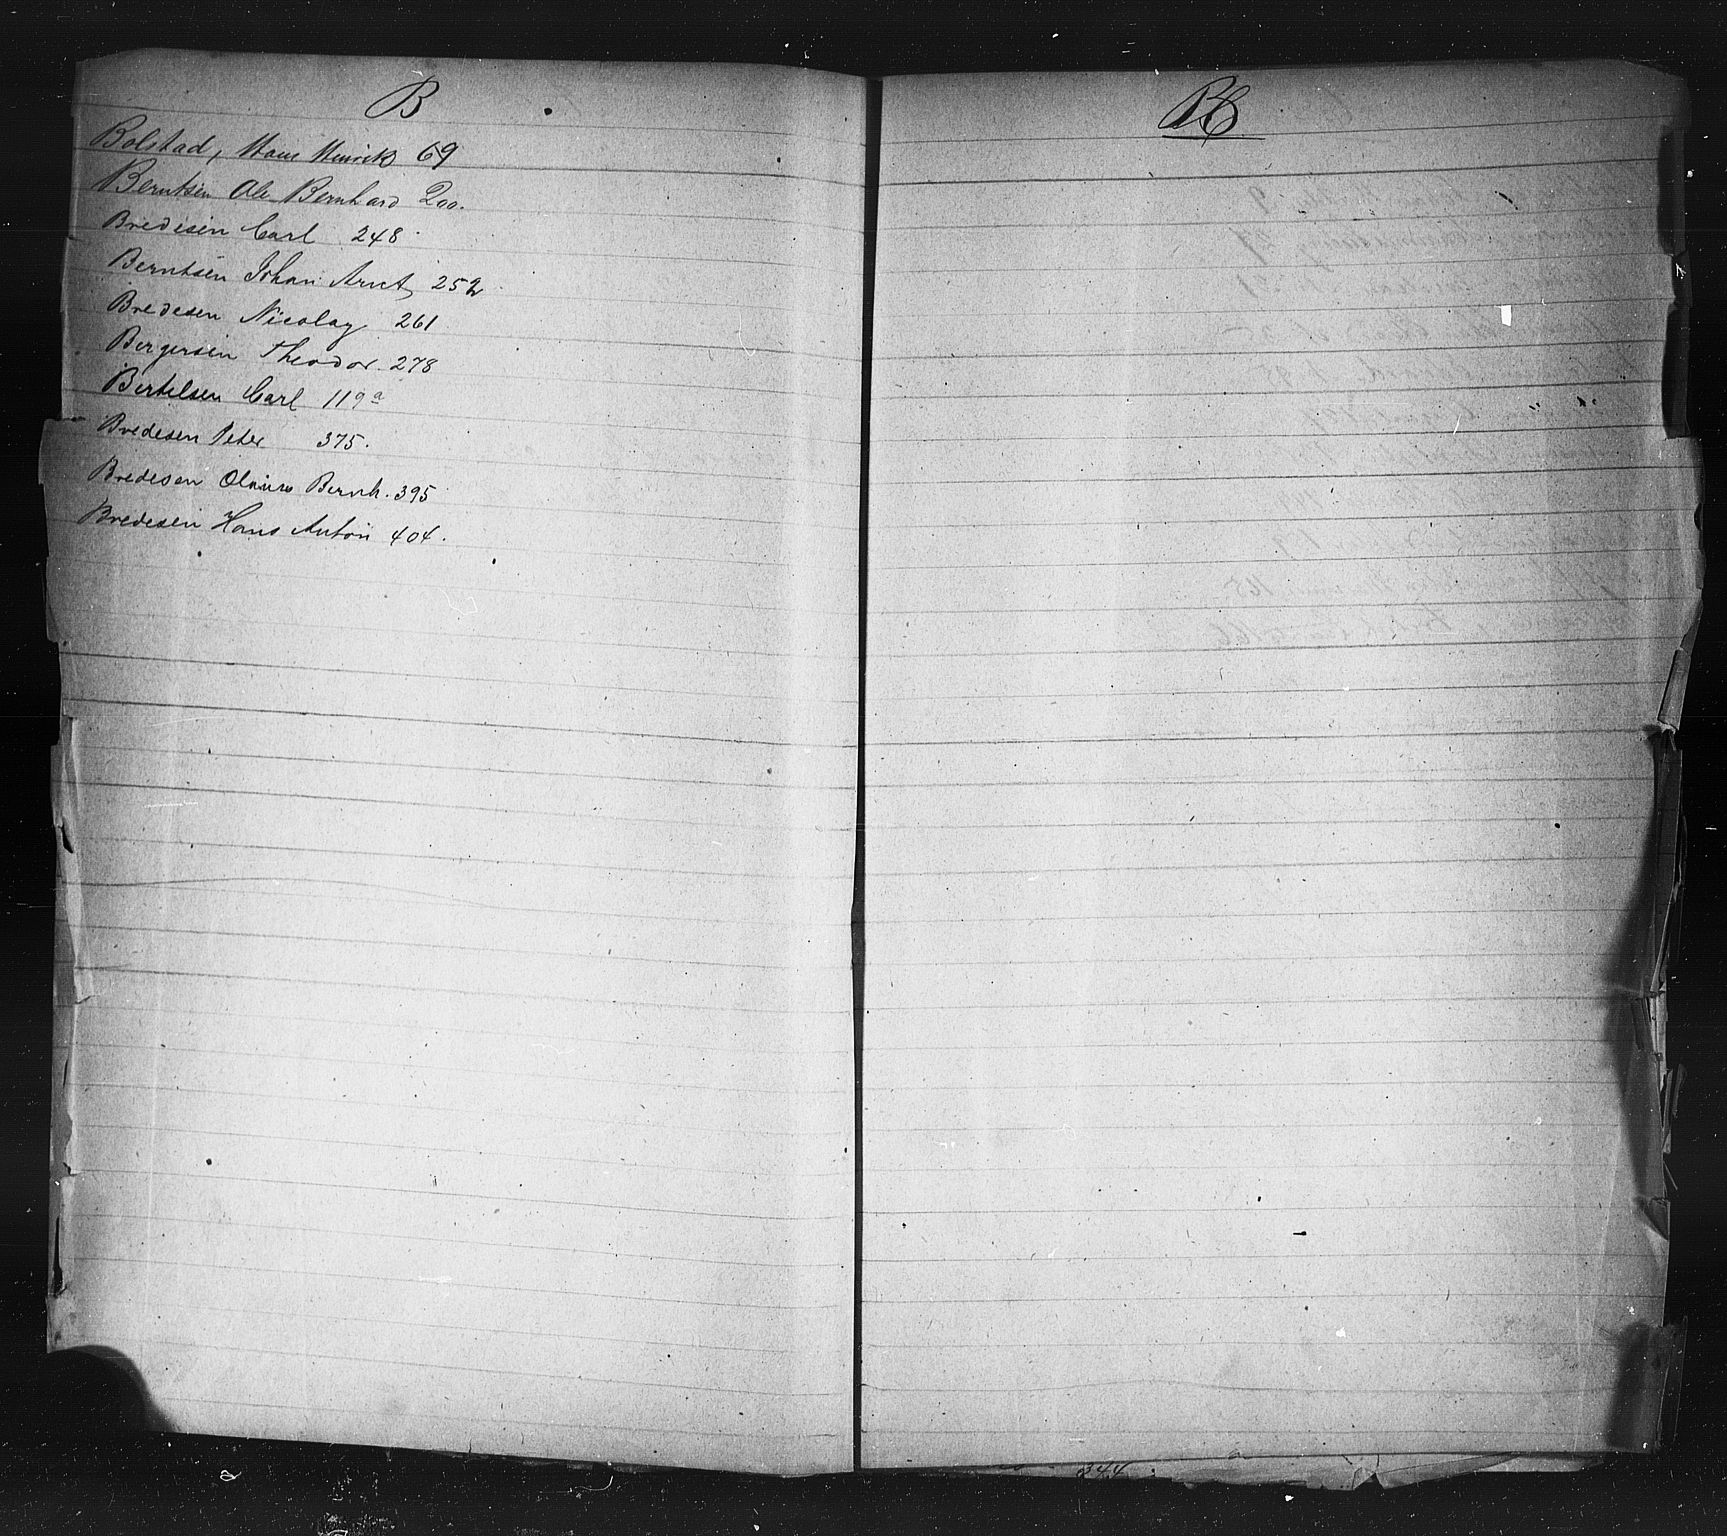 B
Bolstad, Hans Henrik 69
Berntsen Ole Bernhard 200.
Bredesen Carl 248
Berntsen Johan Arnt 252
Bredesen Nicolay 261
Bergersen Theodor 278
Bertelsen Carl 119a
Bredesen Peter 375.
Bredesen Olaus Bernh. 395
Bredesen Hans Anton 404.
344